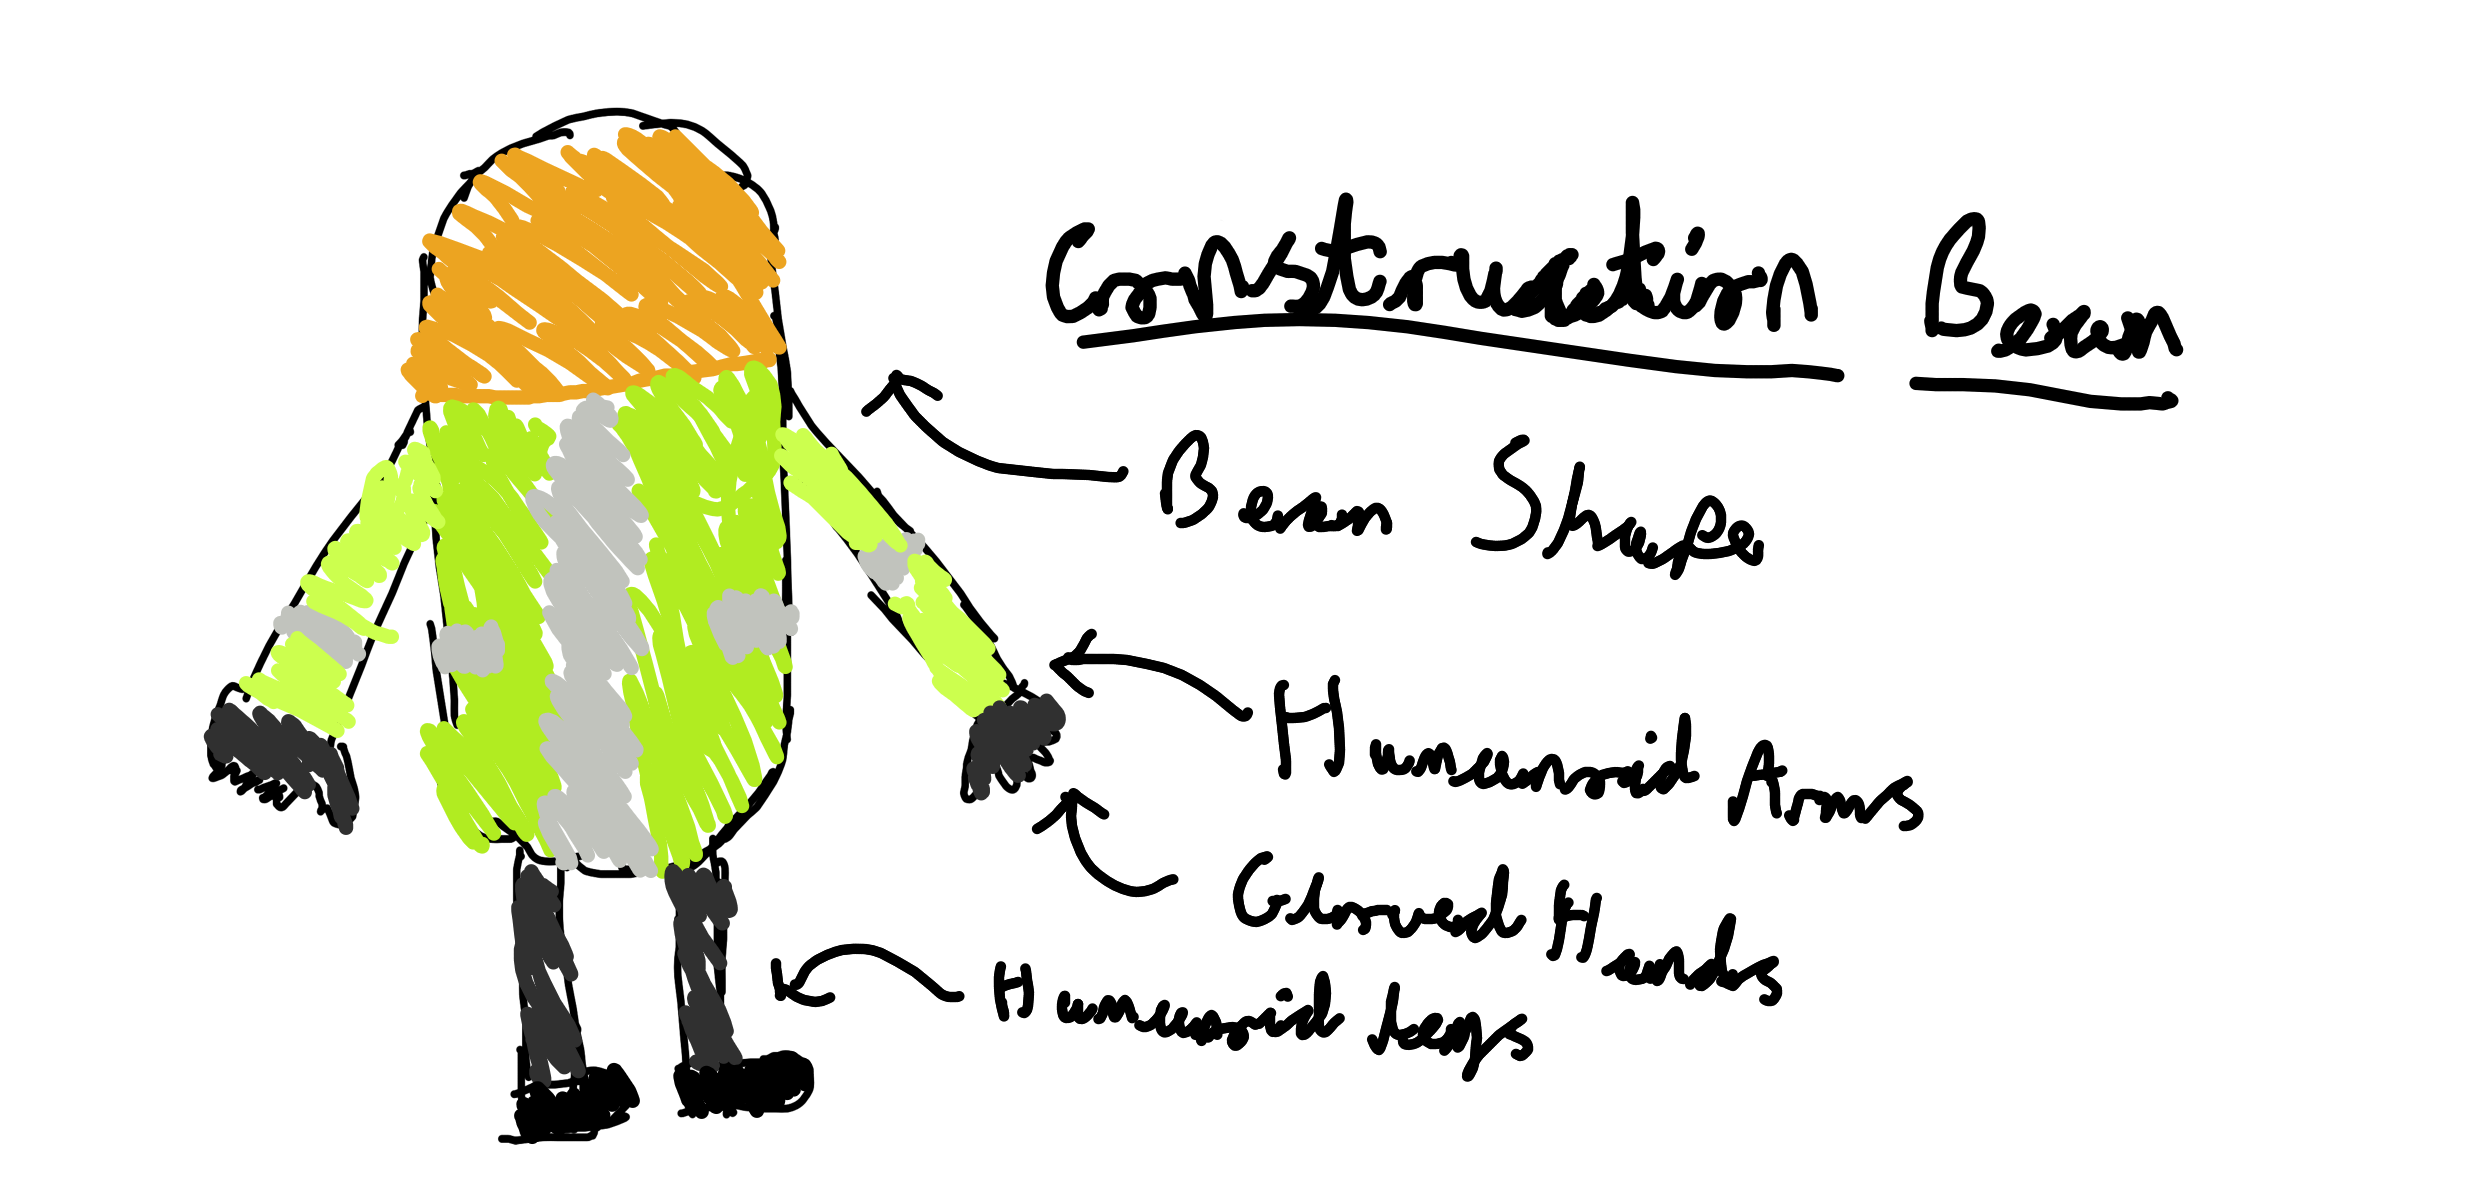 Construction Bean
Bean Shape
Humanoid Arms
Gloved Hands
Humanoid Legs